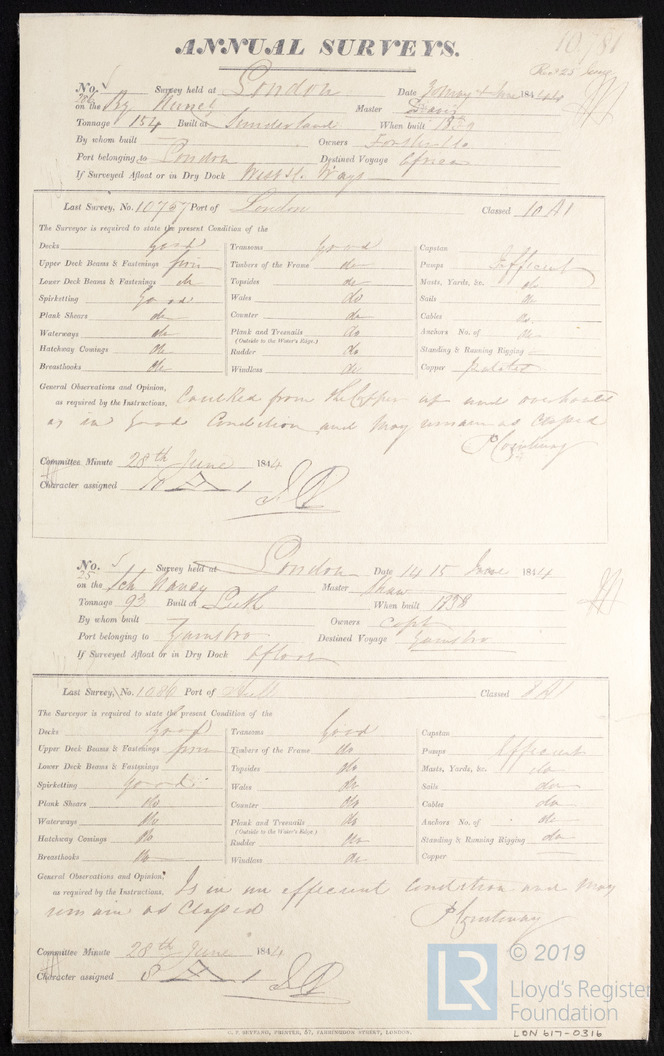 10781
ANNUAL SURVEYS.
Recd 25 June
No. Survey held at London Date May & June 1844
on the Bg Nancy Master
Tonnage 154 Built at Sunderland When built 1839
By whom built Owners
Port belonging to London Destined Voyage Africa
If Surveyed Afloat or in Dry Dock
Last Survey, No. 10757 Port of London Classed 10 A1
The Surveyor is required to state the present Condition of the
Decks Good Transoms Good Capstan
Upper Deck Beams & Fastenings firm Timbers of the Frame do Pumps Efficient
Lower Deck Beams & Fastenings do Topsides do Masts, Yards, &c. do
Spirketting Good Wales do Sails do
Plank Shears do Counter do Cables do
Waterways do Plank and Treenails do Anchors No. of do
(Outside to the Water's Edge.)
Hatchway Comings do Rudder do Standing & Running Rigging
Breasthooks do Windlass do Copper
General Observations and Opinion,
as required by the Instructions. Caulked from the Copper up and
is in Good Condition and May remain as Classed
P Courtenay
Committee Minute 28th June 1844
Character assigned 10 A 1
No. Survey held at London Date 14 15 June 1844
25
on the Sch Nancy Master Shaw
Tonnage 93 Built at Leith When built
By whom built Owners Capt
Port belonging to Gainsbro Destined Voyage Gainsbro
If Surveyed Afloat or in Dry Dock Afloat
Last Survey, No. Port of Hull Classed 8 A1
The Surveyor is required to state the present Condition of the
Decks Good Transoms Good Capstan
Upper Deck Beams & Fastenings firm Timbers of the Frame do Pumps Efficient
Lower Deck Beams & Fastenings Topsides do Masts, Yards, &c. do
Spirketting Good Wales do Sails do
Plank Shears do Counter do Cables do
Waterways do Plank and Treenails do Anchors No. of do
(Outside to the Water's Edge.)
Hatchway Comings do Rudder do Standing & Running Rigging do
Breasthooks do Windlass do Copper
General Observations and Opinion,
as required by the Instructions. Is in an efficient Condition and May
remain as Classed P Courtenay
Committee Minute 28th June 1844
Character assigned 8 A 1
© 2019
LR Lloyd's Register
Foundation
PRINTER, 57, FARRINGDON STREET, LONDON.
LON 617-0316